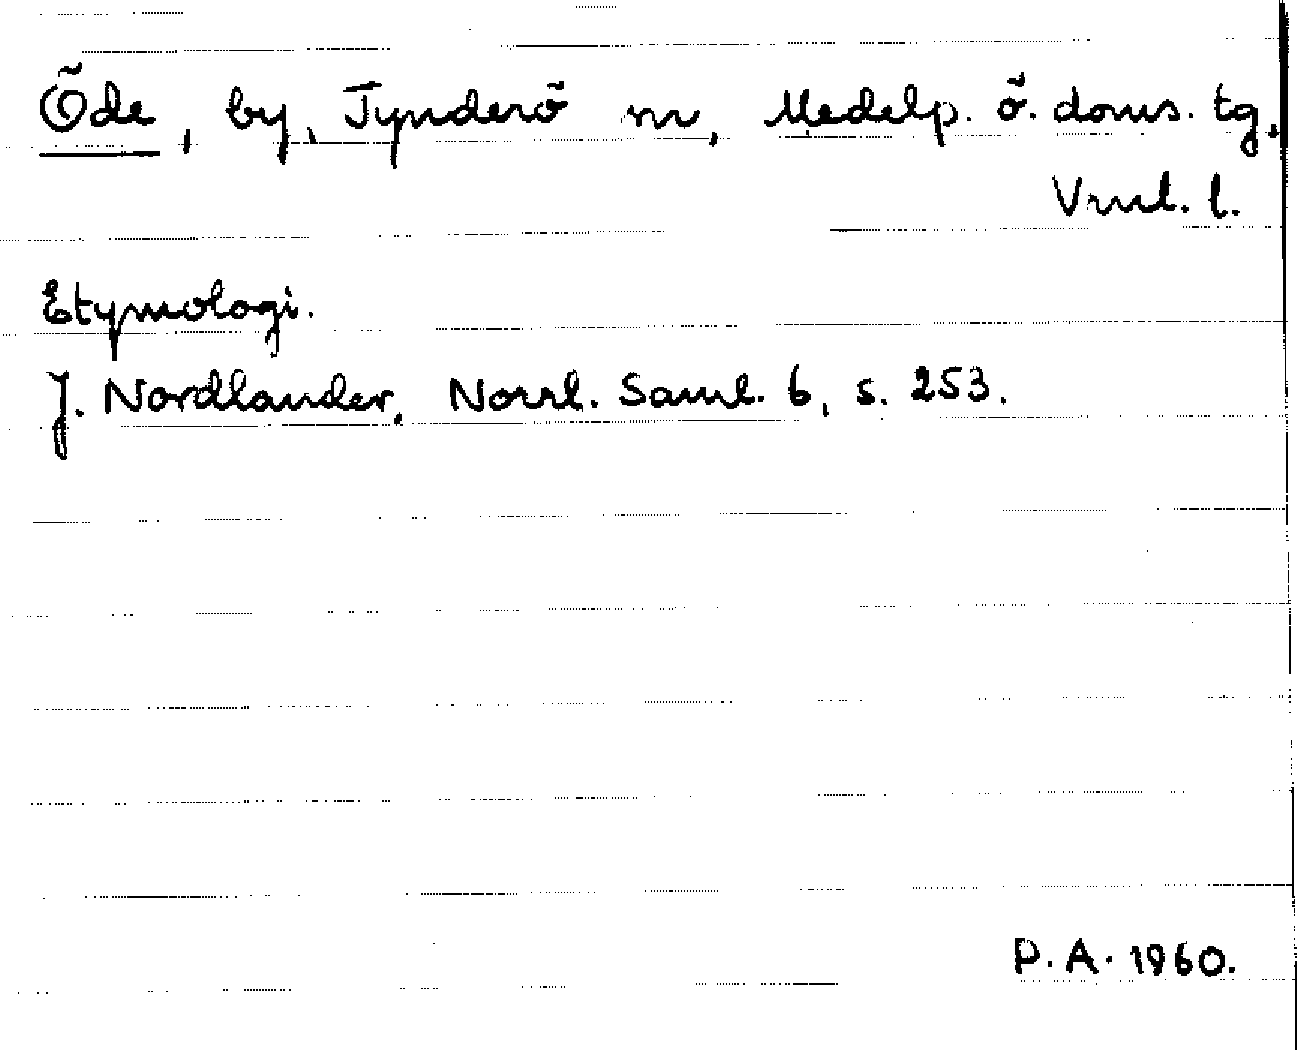 Öde, by, Tynderö sn, Medelp. ö. doms. tg,
Vrnl. l.
Etymologi.
J. Nordlander, Norrl. Saml. 6, s. 253.
P.A. 1960.